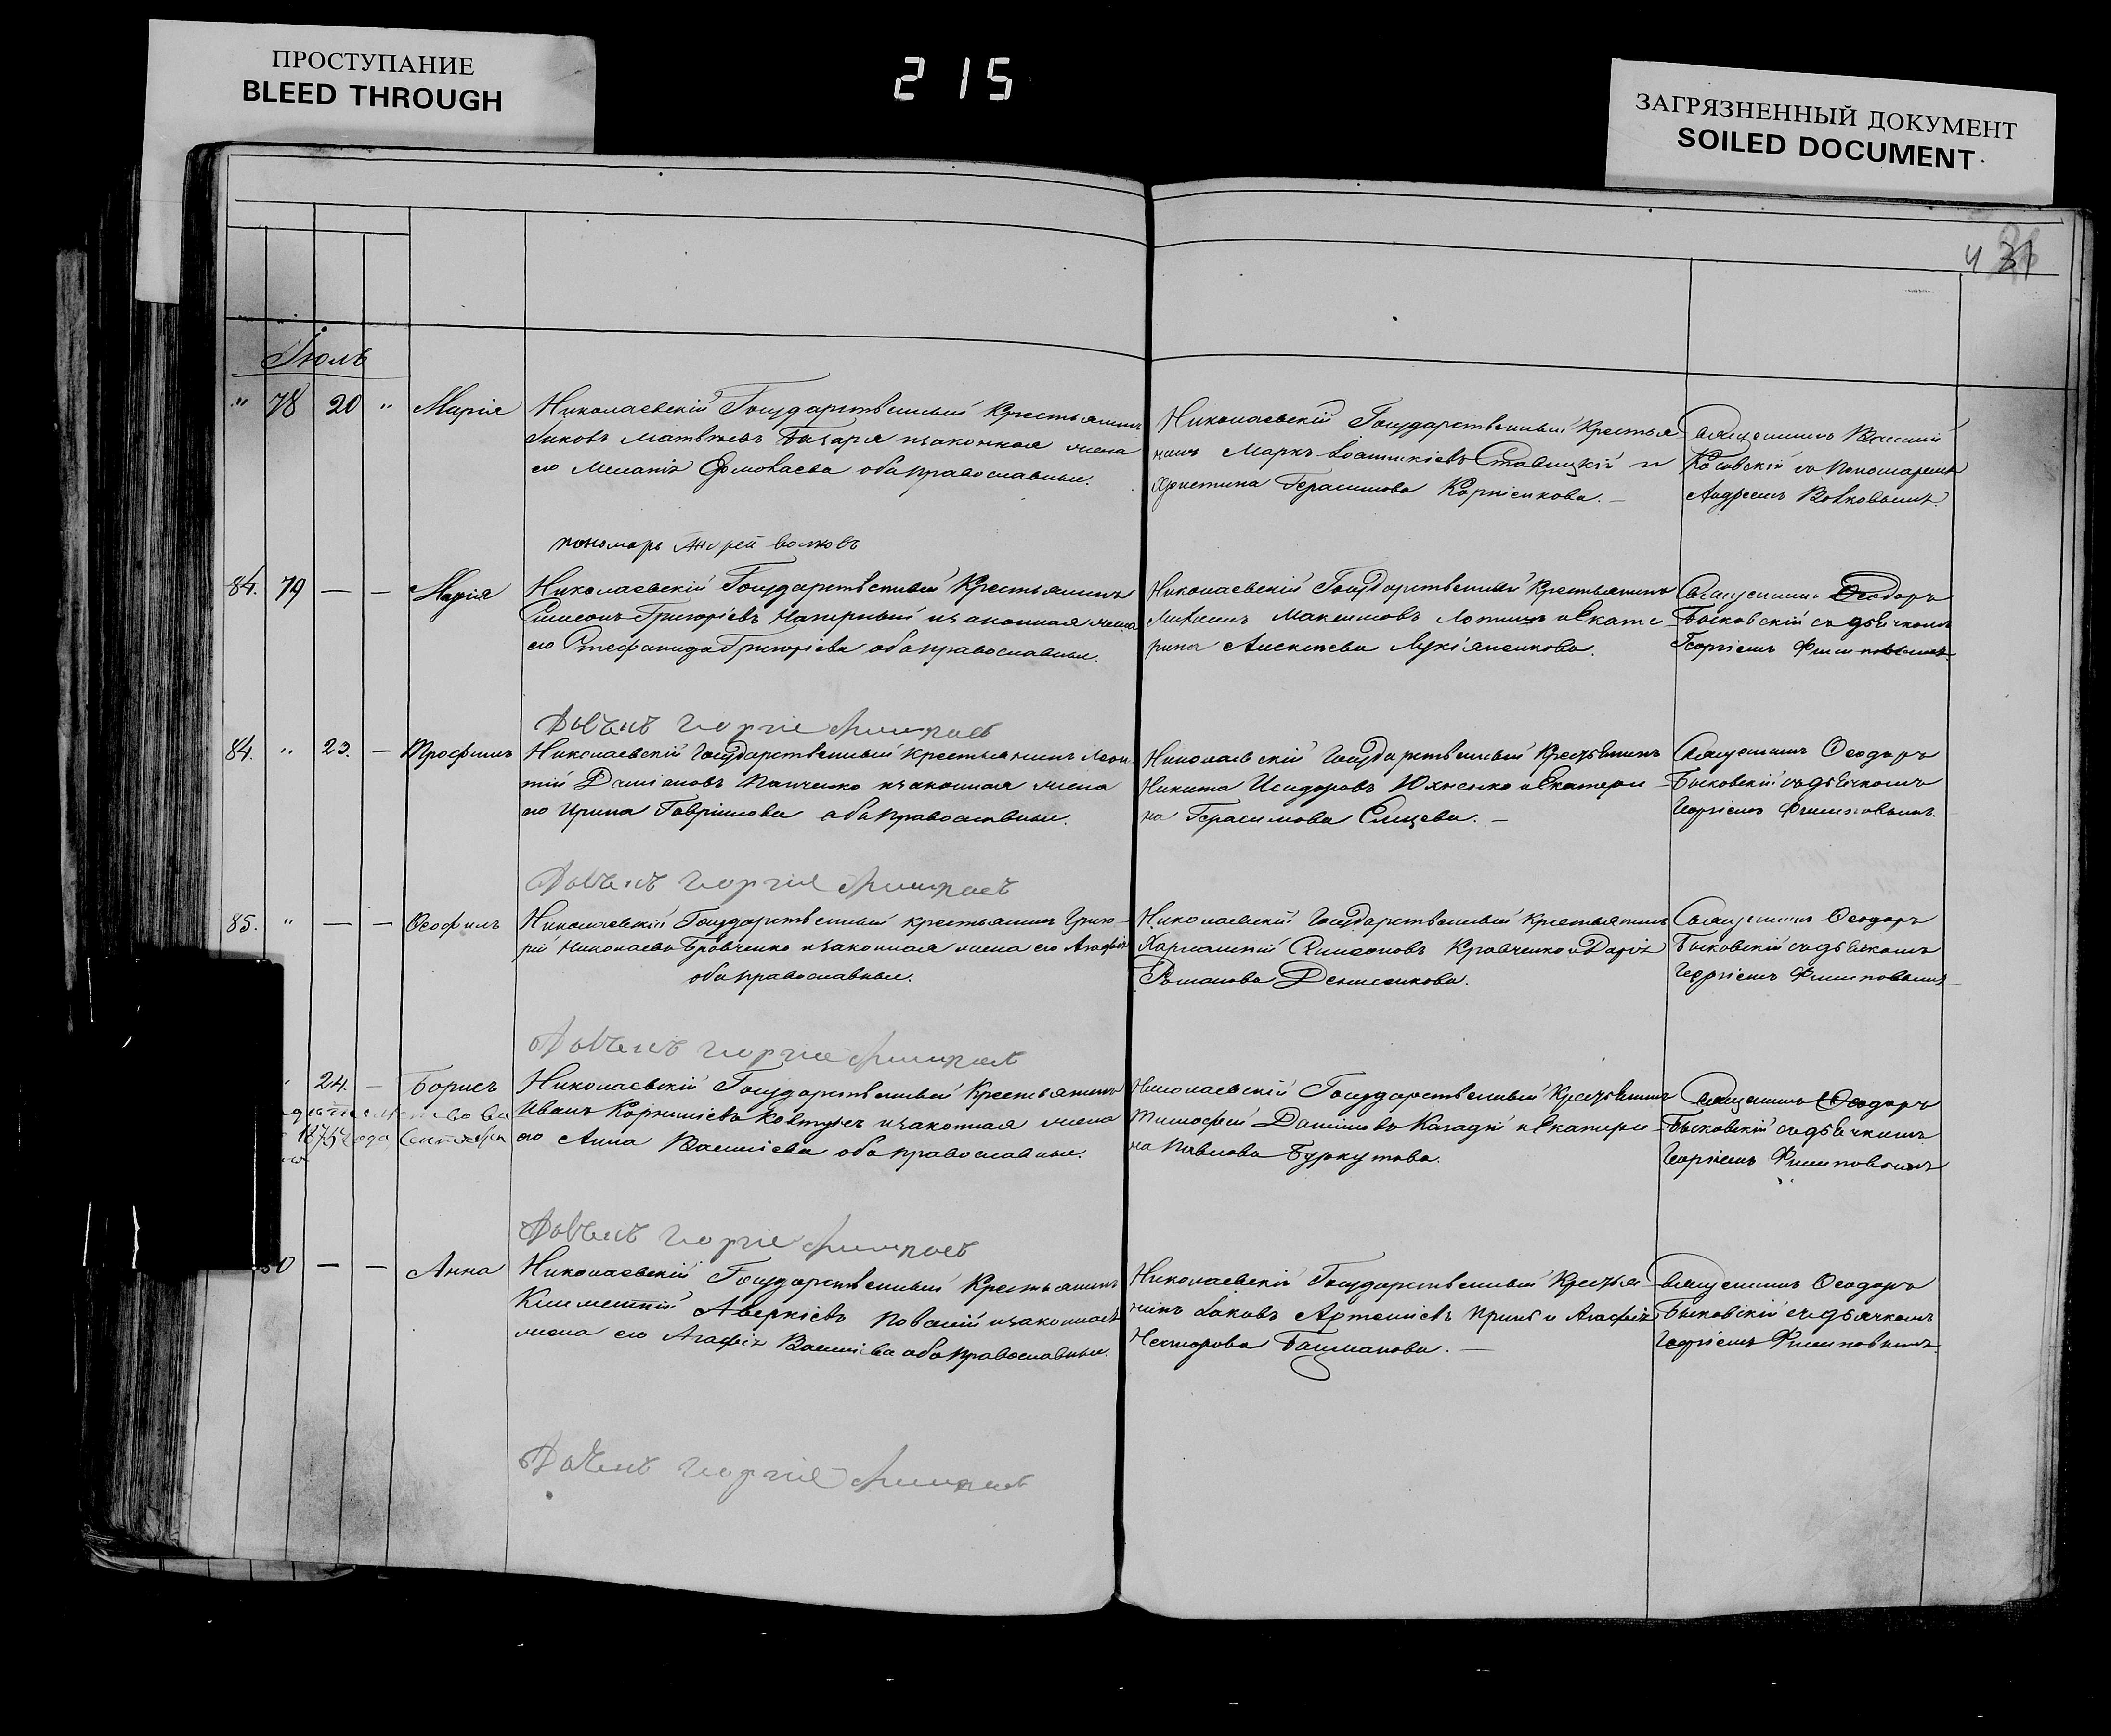 ПРОСТУПАНИЕ
BLEED THROUGH
215
ЗАГРЯЗНЕННЫЙ ДОКУМЕНТ
SOILED DOCUMENT
31
Іюль
" 78 20 " Марія
Николаевскій Государственный Крестьянинъ
Іаковъ Матвѣевъ и законная жена
его Меланія оба православные.
Николаевскій Государственный Крестья
нинъ Маркъ Ставицкій и
Христина Герасимова Корніенкова. —
Священникъ Василій
Косовскій съ Пономаремъ
Андреемъ Волковымъ.
пономарь Андрей Волковъ
84. 79 — — Марія
Николаевскій Государственный Крестьянинъ
Симеонъ Григоріевъ Нагирный и законная жена
его Стефанида Григоріева оба православные.
Николаевскій Государственный Крестьянинъ
Максимовъ и Екате
рина Алексѣева Лукіяненкова.
Священникъ Ѳеодоръ
Быковскій съ дьячкомъ
Георгіемъ Филиповымъ
Дьячекъ Георгіе Филиповъ
84. " 23. — Трофимъ
Николаевскій Государственный Крестьянинъ Леон
тій Даміановъ Панченко и законная жена
его Ирина Гавріилова оба православные.
Николаевскій Государственный Крестьянинъ
Никита Исидоровъ Юхненко и Екатери
на Герасимова Елицева. —
Священникъ Ѳеодоръ
Быковскій съ дьячкомъ
Георгіемъ Филиповымъ.
Дьячекъ Георгіе Филиповъ
85. " — — Ѳеофилъ
Николаевскій Государственный Крестьянинъ Григо
рій Николаевъ Бровченко и законная жена его Агафія
оба православные.
Николаевскій Государственный Крестьянинъ
Харлампій Симеоновъ Кравченко и Дарія
Романова Денисенкова.
Священникъ Ѳеодоръ
Быковскій съ дьячкомъ
Георгіемъ Филиповымъ
Дьячекъ Георгіе Филиповъ
24. — Борисъ
1875 года Сентября
Николаевскій Государственный Крестьянинъ
Иванъ Корниліевъ Ковтунъ и законная жена
его Анна Василіева оба православные.
Николаевскій Государственный Крестьянинъ
Тимофей Даніиловъ и Екатери
на Павлова Буркутова.
Священникъ Ѳеодоръ
Быковскій съ дьячкомъ
Георгіемъ Филиповымъ
Дьячекъ Георгіе Филиповъ
— — Анна
Николаевскій Государственный Крестьянинъ
Климентій Аверкіевъ и законная
жена его Агафія Василіева оба православные.
Николаевскій Государственный Крестья
нинъ Іаковъ Артеміевъ и Агафія
Несторова Бацманова. —
Священникъ Ѳеодоръ
Быковскій съ дьячкомъ
Георгіемъ Филиповымъ.
Дьячекъ Георгіе Филиповъ